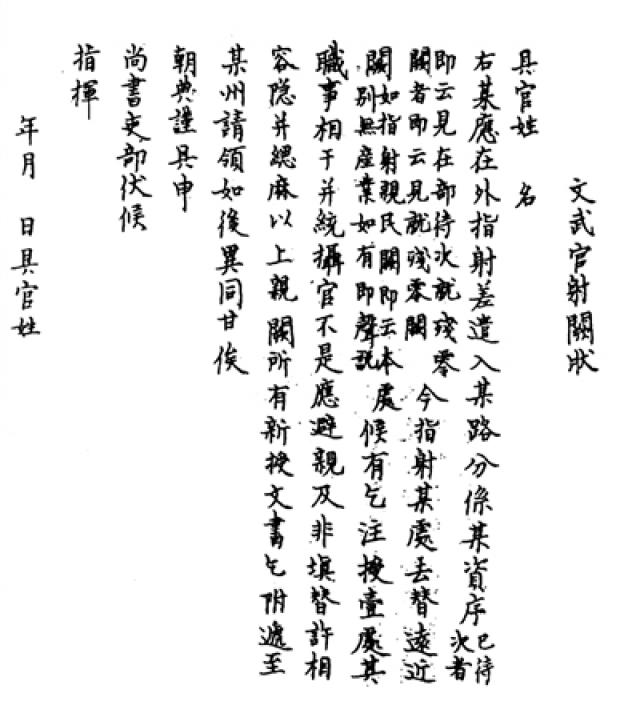 文武官射闕狀
具官姓　名
右某應在外指射差遣入某路分係某資序已待次者
即云見在部待次就殘零
闕者即云見就殘零闕　今指射某處去替遠近
闕如指射親民闕即云本處
別無産業如有即聲說　候有乞注授壹處其
職事相干并統攝官不是應避親及非填替許相
容隐并緦麻以上親闕所有新授文書乞附遞至
某州請領如後異同甘俟
朝典謹具申
尚書吏部伏候
指揮
年月　日具官姓